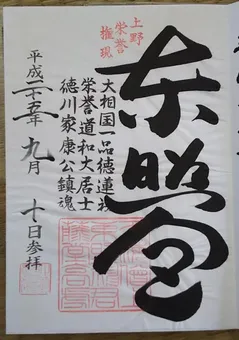 東照宮
上野
栄誉
権現
大相国一品徳蓮社
栄誉道和大居士
徳川家康公鎮魂
平成二十五年九月十日参拝